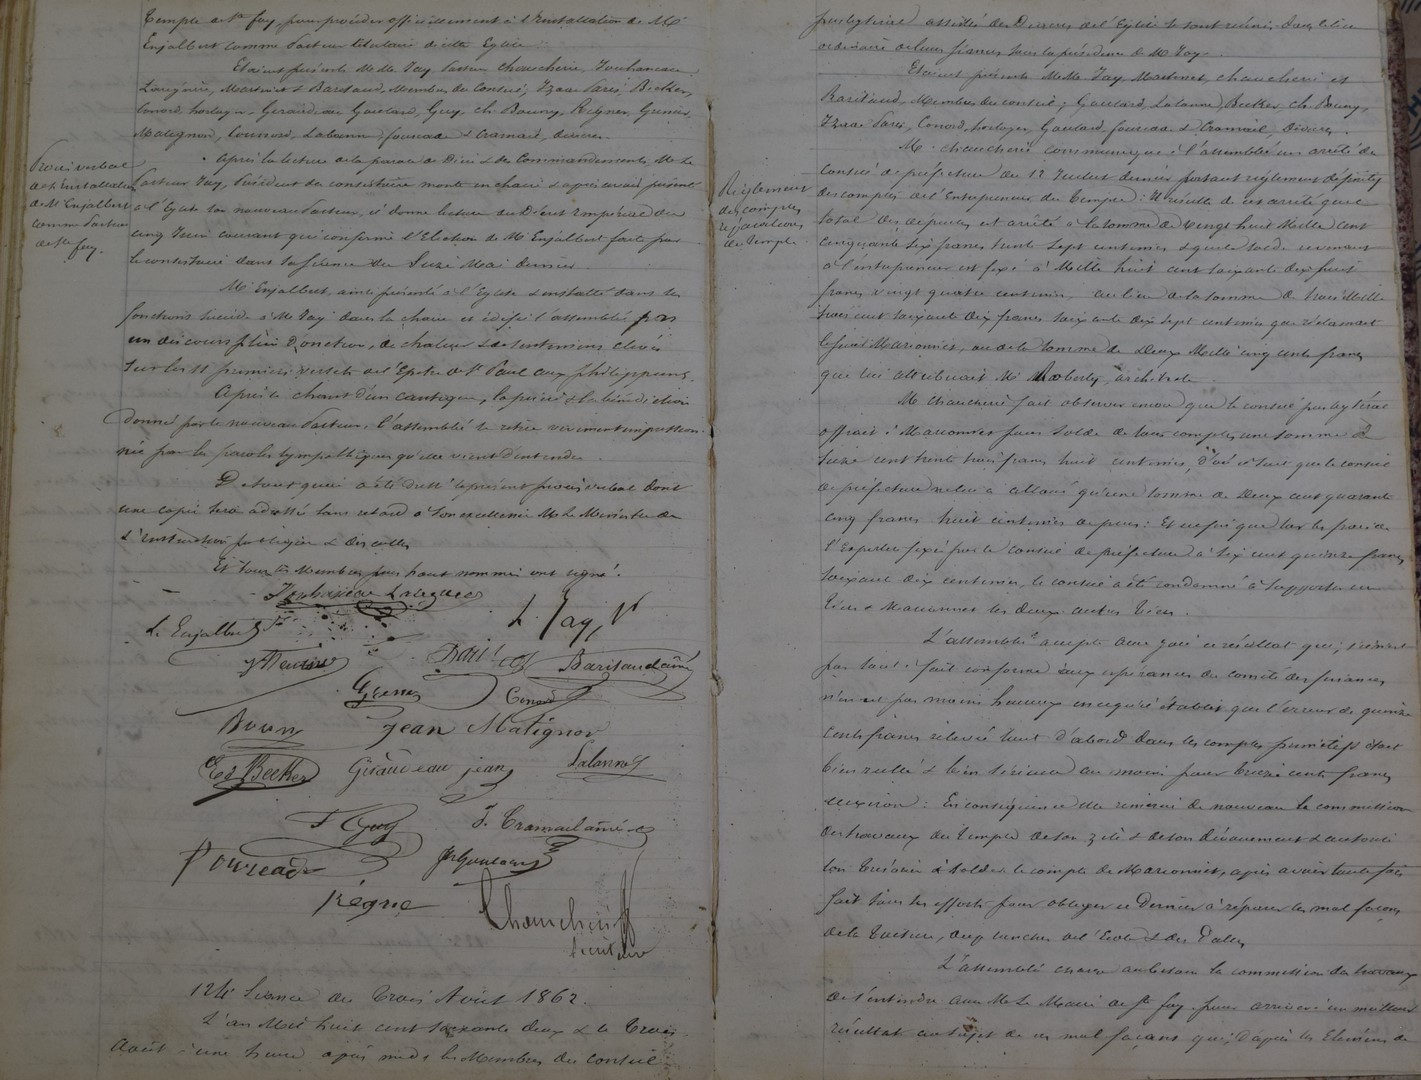 Temple de Ste foy, pour procéder officiellement à l'installation de Mr
Enjalbert comme Pasteur titulaire de cette Eglise
Etaient présents MMs Jay, Pasteur, Chaucherie,
Martinet & Baritaud, Membres du Conseil, Izaac Paris, Becker,
Conord, horloger, Giraudeau, Goulard, Guy, Ch. Bouny, Reigner, Grenier
Matignon, Lalanne, foureau & Cramail, diacres
Procès verbal
de l'installation
de Mr Enjalbert
comme Pasteur
de Ste foy.
Après la lecture de la parole de Dieu & des Commandements, Mr le
Pasteur Jay, Président du consistoire monte en chaire & après avoir présenté
à l'Eglise son nouveau Pasteur, il donne lecture du Décret Impérial du
cinq Juin courant qui confirme l'Election de Mr Enjalbert faite par
le consistoire dans sa séance du Seize Mai dernier
Mr Enjalbert, ainsi présenté à l'Eglise & installé dans ses
fonctions succède à Mr Jay dans la chaire et édifie l'assemblée par
un discours plein d'onction, de chaleur & de sentiments élevés
sur les 11 premiers versets de l'Epitre de St Paul aux philippiens.
Après le chant d'un cantique, la prière & la bénédiction
donnée par le nouveau Pasteur, l'assemblée se retire vivement impression-
née par les paroles sympathiques qu'elle vient d'entendre.
De tout quoi a été dressé le présent procès verbal dont
une copie sera adressée sans retard à Son excellence Mr le Ministre de
l'Instruction publique & des cultes
Et tous les Membres plus haut nommés ont signé.
L. Enjalbert
L. Jay, Pt
Baritaud aîné
Grenier
Conord
Bouny
Jean Matignon
Ed Becker
Giraudeau jean
Lalanne
F. Guy
J. Cramail aîné
Foureau
Goulard
Règne
Chaucherie
Secrétaire
124e Séance du Trois Août 1862.
L'an Mil huit cent soixante deux & le Trois
Août à une heure après midi les Membres du Conseil
presbytéral assistés des Diacres de l'Eglise se sont réunis dans le lieu
ordinaire de leurs séances sous la présidence de Mr Jay
Etaient présents MMs Jay, Martinet, Chaucherie et
Baritaud, Membres du conseil; Goulard, Lalanne, Becker, Ch. Bouny,
Izaac Paris, Conord, horloger, Goulard, foureau & Cramail, Diacres.
Règlement
des comptes
réparations
du Temple
Mr Chaucherie communique à l'assemblée un arrêté du
Conseil de préfecture du 12 Juillet dernier portant règlement définitif
des comptes de l'Entrepreneur du Temple: Il résulte de cet arrêté que le
total des dépenses est arrêté à la somme de vingt huit Mille cent
cinquante six francs trente sept centimes & que le solde revenant
à l'entrepreneur est fixé à Mille huit cent soixante dix huit
francs vingt quatre centimes, au lieu de la somme de trois Mille
trois cent soixante dix francs soixante dix sept centimes que réclamait
le sieur Marionnet, ou de la somme de Deux Mille cinq cents francs
que lui attribuait Mr architecte
Mr Chaucherie fait observer encore que le conseil presbytéral
offrait à Marionnet pour solde de tous comptes une somme de
Seize cent trente trois francs huit centimes, d'où il suit que le conseil
de préfecture ne lui a alloué qu'une somme de Deux cent quarante
cinq francs huit centimes de plus: Et enfin que sur les frais de
l'Expertise fixés par le conseil de préfecture à six cent quinze francs
soixante dix centimes, le conseil a été condamné à supporter un
tiers & Marionnet les deux autres tiers.
L'assemblée accepte avec joie ce résultat qui, s'il n'est
pas tout à fait conforme aux espérances du comité des finances,
n'en est pas moins heureux en ce qu'il établit que l'erreur de quinze
cents francs relevée tout d'abord dans les comptes primitifs était
bien réelle & bien sérieuse au moins pour treize cents francs
environ: En conséquence elle remercie de nouveau la commission
des travaux du Temple de son zèle & de son dévouement & autorise
son Trésorier à solder le compte de Marionnet, après avoir toutefois
fait tous les efforts pour obliger ce dernier à réparer les mal façons
de la toiture, des planches de l'Ecole & des Dalles
L'assemblée charge au besoin la commission des travaux
de s'entendre avec Mr Le Maire de Ste foy, pour arriver à un meilleur
résultat au sujet de ces mal façons qui, d'après les Eléments de